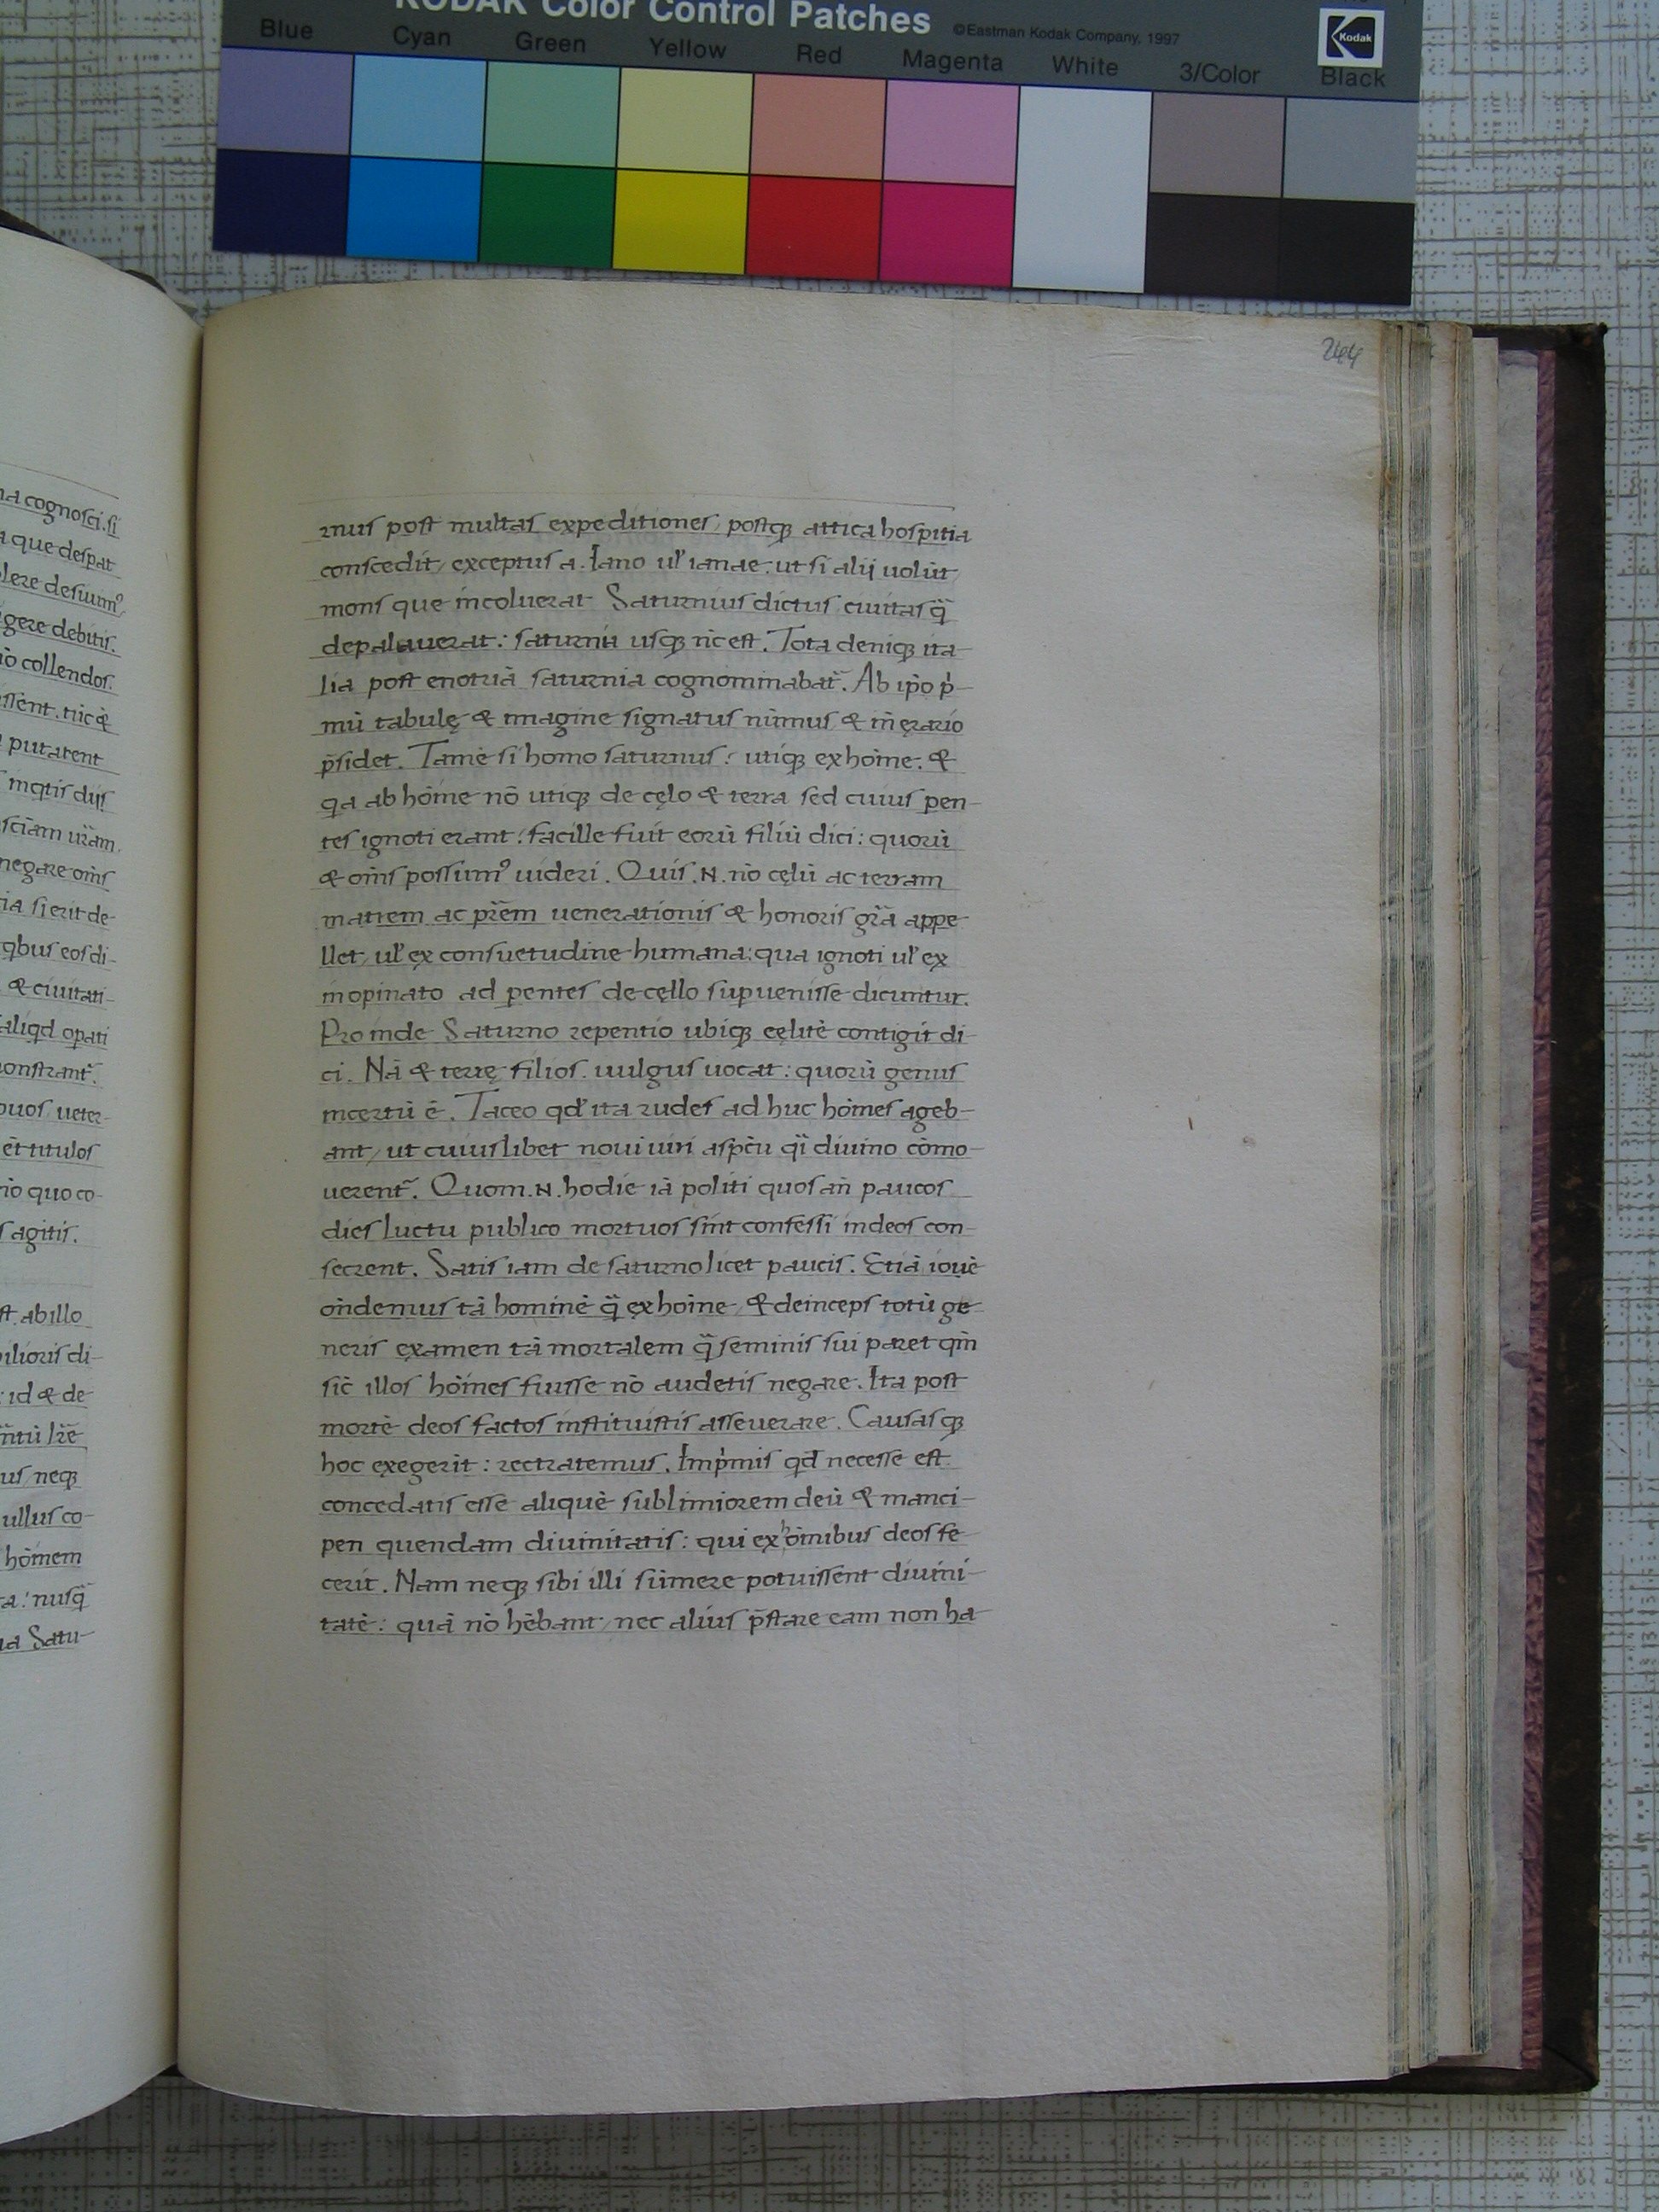 KODAK Color Control Patches ©Eastman Kodak Company, 1997
Blue Cyan Green Yellow Red Magenta White 3/Color Black
Kodak
244
rnus post multas expeditiones, postq; attica hospitia
conscedit, exceptus a. Iano ul' ianae. ut si alij uolūt
mons que incoluerat Saturnius dictus ciuitas q̄
depalauerat: saturnia usq; nc̄ est. Tota deniq; ita-
lia post enotriā saturnia cognominabat̄. Ab ip̄o p̍-
mū tabulę & imagine signatus nūmus & in̄ ęrario
p̄sidet. Tamē si homo saturnus: utiq; ex hōīne. &
qa ab hōīne nō utiq; de cęlo & terra sed cuius ꝑen-
tes ignoti erant: facille fuit eorū filiū dici: quorū
& oīns possumꝰ uideri. Quis .N. nō cęlū ac terram
mattem ac pr̄em uenerationis & honoris gr̄a appe-
llet, ul' ex consuetudine humana: qua ignoti ul' ex
inopinato ad ꝑentes de cęllo suꝑuenisse dicuntur.
Proinde Saturno repentio ubiq; cęlitē contigit di-
ci. Nā & terrę filios. uulgus uocat: quorū genus
incertū ē. Taceo qd' ita rudes ad huc hōīmes ageb-
ant, ut cuiuslibet noui uiri aspc̄u q̄i diuino cōmo-
uerent̄. Quom .N. hodie iā politi quos an̄ paucos
dies luctu publico mortuos sint confessi in deos con-
secrent. Satis iam de saturno licet paucis. Etiā iouē
on̄demus tā hominē q̄ ex hoīne, & deinceps totū ge-
neris examen tā mortalem q̄ seminis sui paret qm̄
sic̄ illos hōīnes fuisse nō audetis negare. Ita post
mortē deos factos instituistis asseuerare. Causas q;
hoc exegerit: rectratemus. Imp̍mis qd̄ necesse est
concedatis esse aliquē sublimiorem deū & manci-
pen quendam diuinitatis: qui ex hōīnibus deos fe-
cerit. Nam neq; sibi illi sūmere potuissent diuini-
tatē: quā nō hēbant, nec alius p̄stare eam non ha-